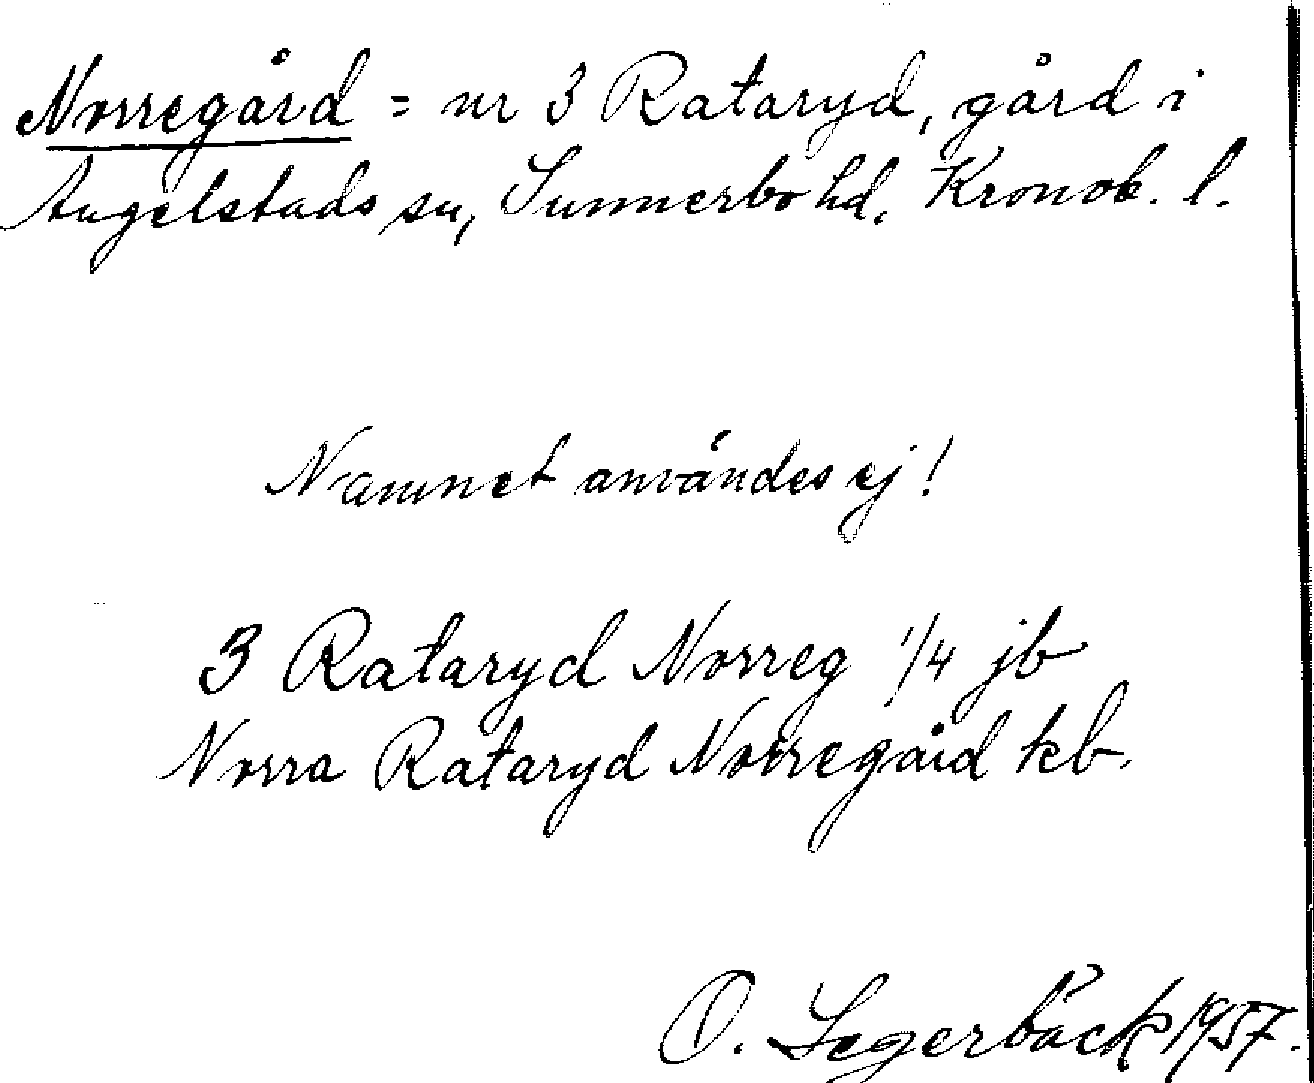 Norregård = nr 3 Rataryd, gård i
Angelstads sn, Sunnerbo hd. Kronob. l.
Namnet användes ej!
3 Rataryd Norreg 1/4 jb
Norra Rataryd Norregård kb.
O. Segerbäck 1957.